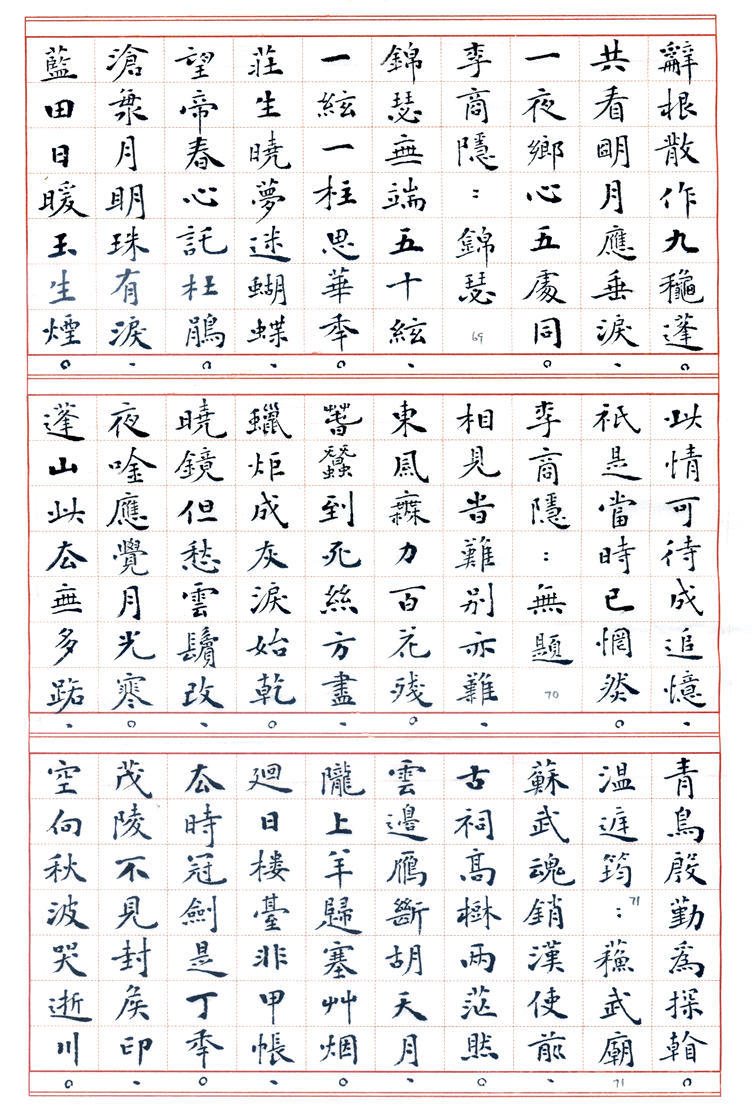 辭根散作九龝蓬。
共看朙月應垂淚、
一夜鄉心五處同。
李商隱：錦瑟 69
錦瑟無端五十絃、
一絃一柱思華秊。
莊生曉夢迷蝴蝶、
望帝春心託杜鵑。
滄海月明珠有淚、
藍田日暖玉生煙。
此情可待成追憶、
祇是當時已惘然。
李商隱：無題 70
相見旹難別亦難、
東風無力百花殘。
春蠶到死絲方盡、
蠟炬成灰淚始乾。
曉鏡但愁雲鬢改、
夜唫應覺月光寒。
蓬山此厺無多路、
青鳥殷勤為探看。
温庭筠：蘓武廟 71 71
蘇武魂銷漢使前、
古祠高樹兩茫然。
雲邊鴈斷胡天月、
隴上羊歸塞艸烟。
廻日樓臺非甲帳、
厺時冠劍是丁秊。
茂陵不見封侯印、
空向秋波哭逝川。